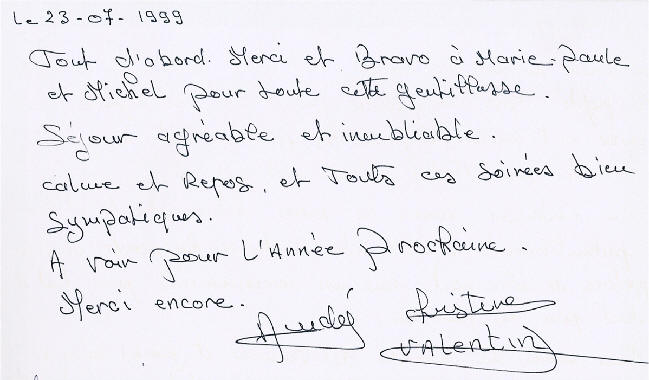 Le 23-07-1999
Tout d'abord. Merci et Bravo à Marie-Paule
et Michel pour toute cette gentillesse.
Séjour agréable et inoubliable.
calme et Repos, et Touts ces Soirées bien
Sympatiques.
A voir pour L'Année Prochaine.
Merci encore.
Kristine
VALentin